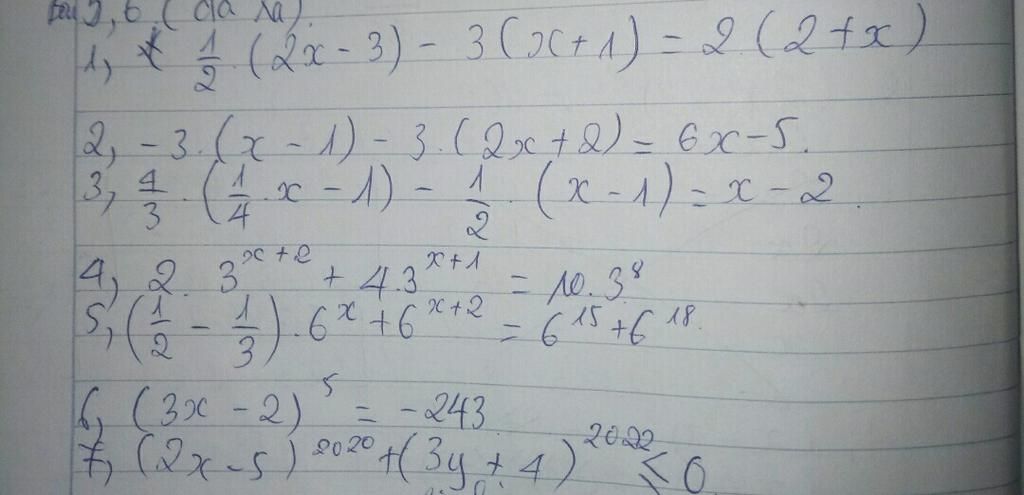 1, 1/2 . (2x - 3) - 3 (x + 1) = 2 . (2 + x)
2, - 3 . (x - 1) - 3 . (2x + 2) = 6x - 5.
3, 4/3 . (1/4 . x - 1) - 1/2 . (x - 1) = x - 2.
4, 2 . 3^(x+2) + 4 . 3^(x+1) = 10 . 3^8
5, (1/2 - 1/3) . 6^x + 6^(x+2) = 6^15 + 6^18.
6, (3x - 2)^5 = - 243
7, (2x - 5)^2020 + (3y + 4)^2022 ≤ 0